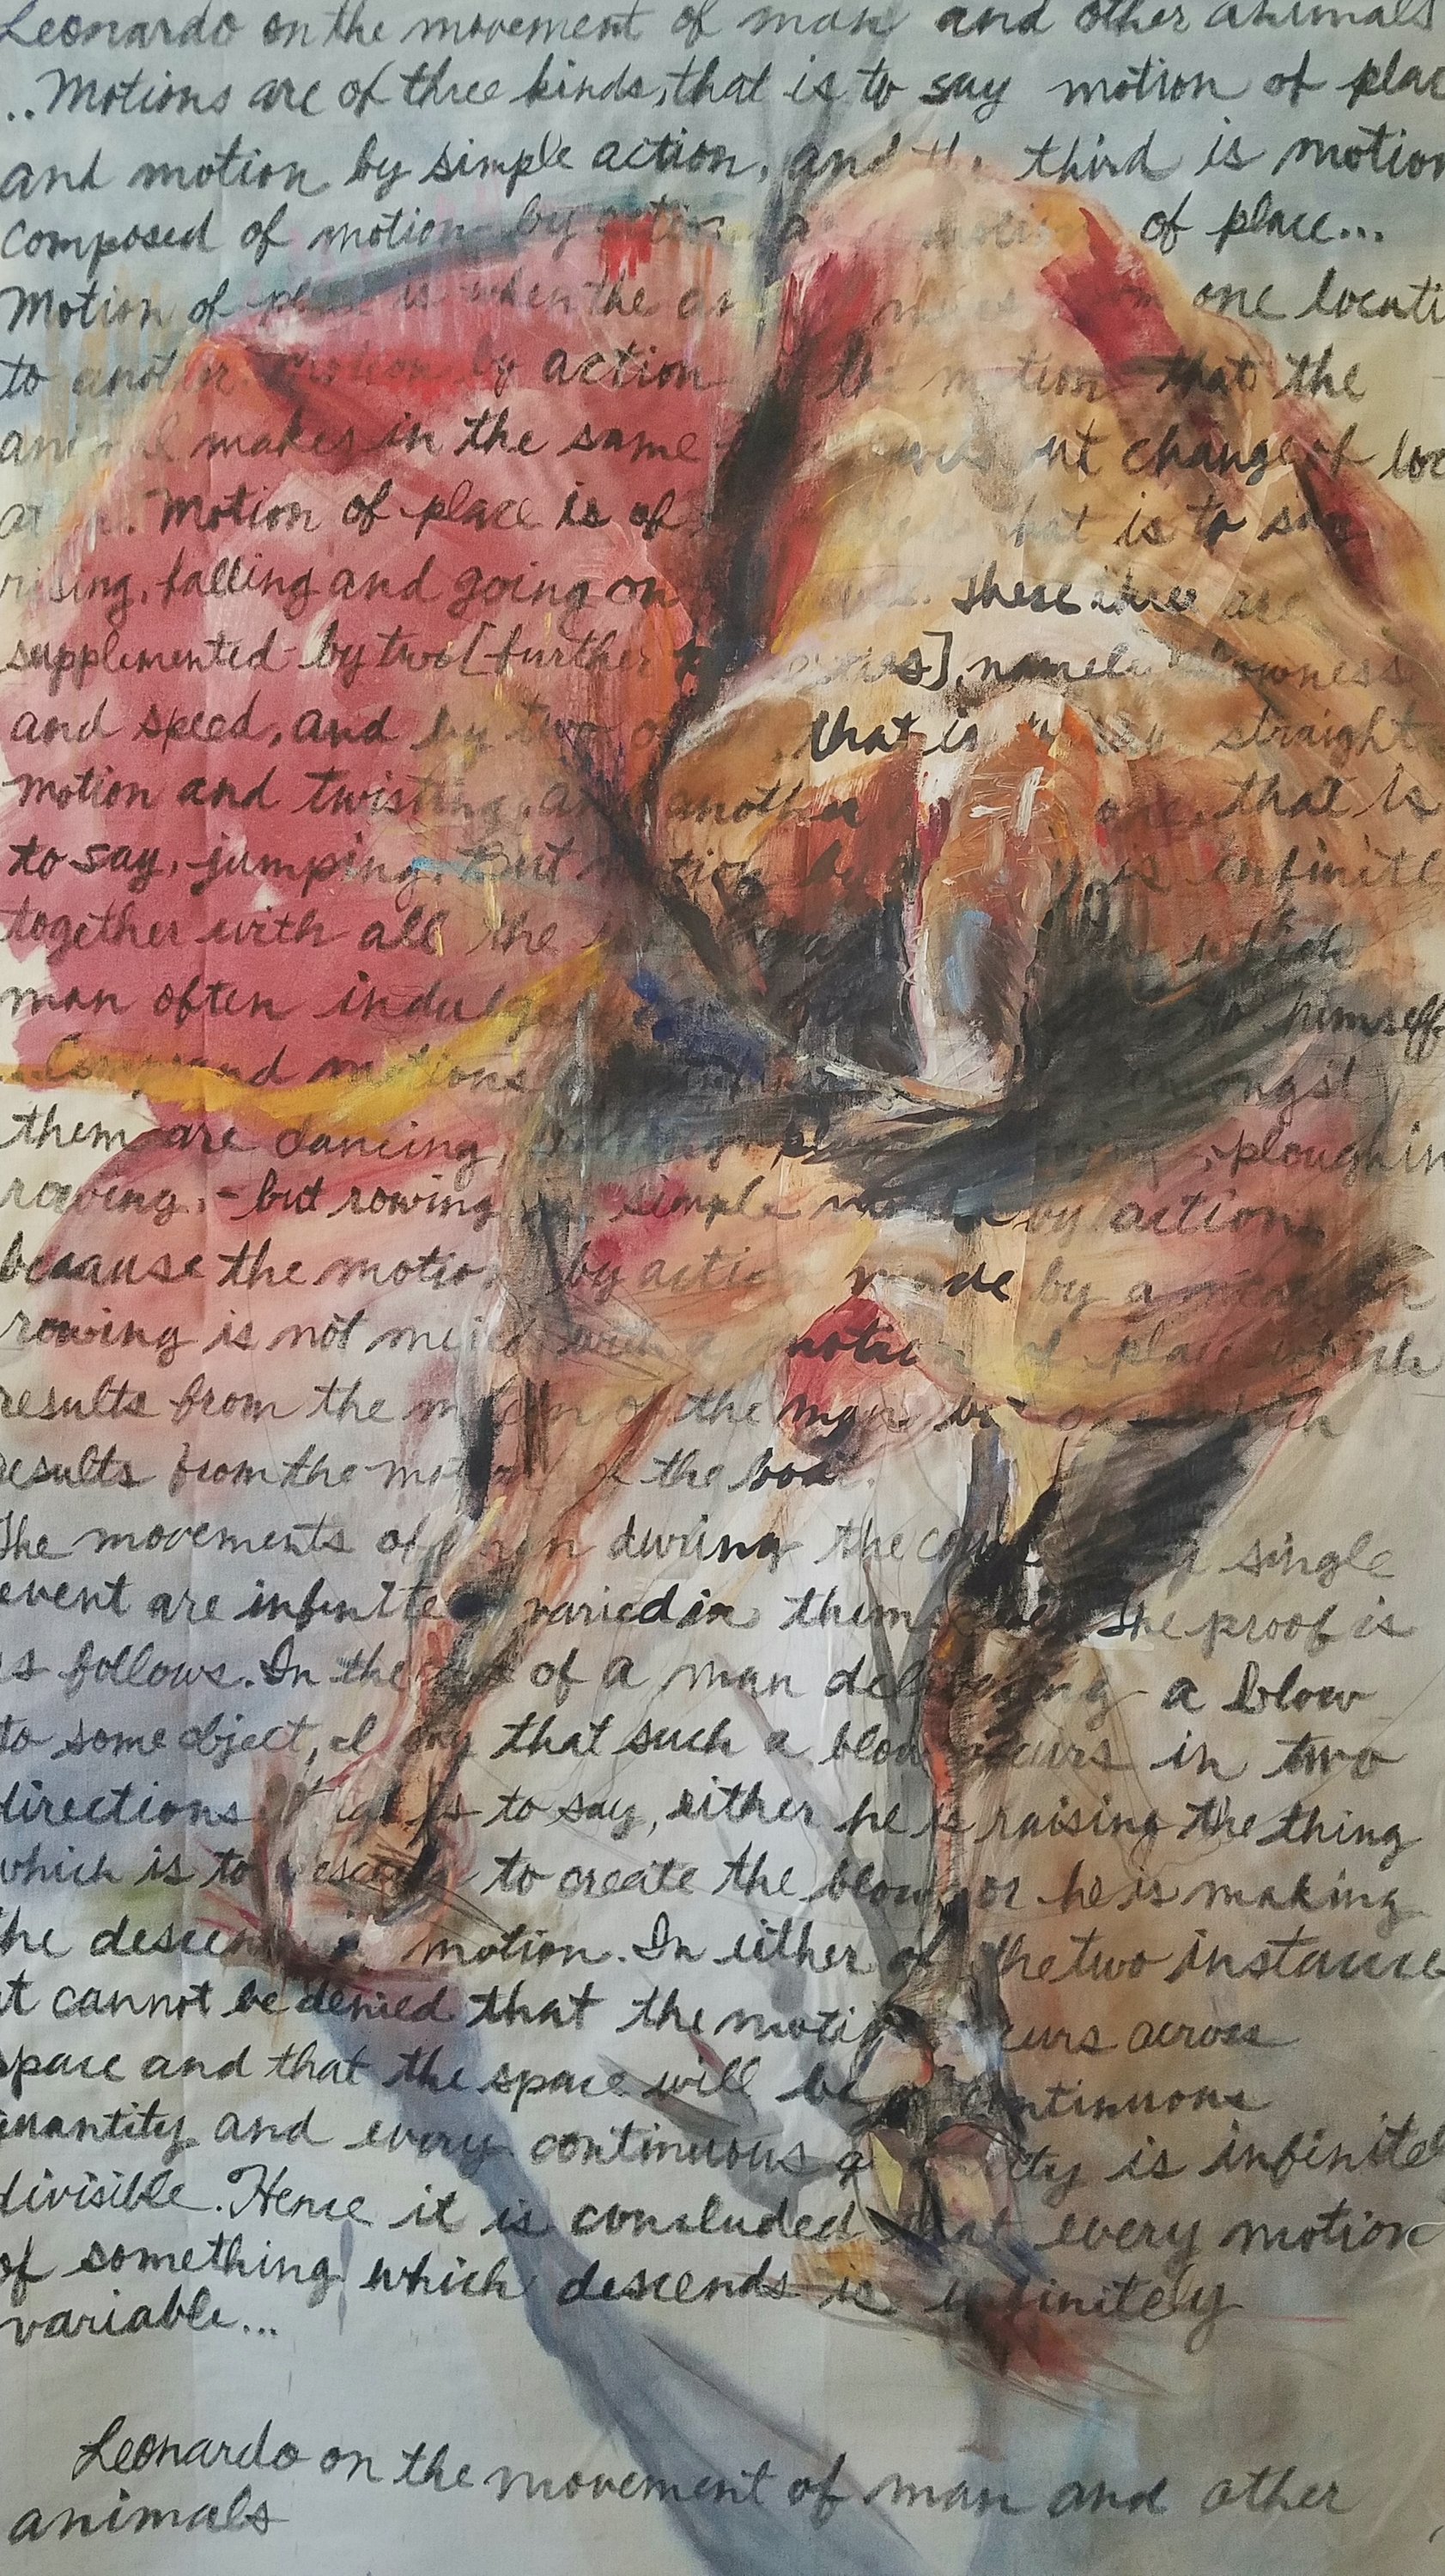 Leonardo on the movement of man and other animals
...Motions are of three kinds, that is to say motion of plac
and motion by simple action, and the third is motion
composed of motion by action a of place...
Motion of place is when the an m one locati
to another. Motion by action is the motion that the
animal makes in the same change of loc
at Motion of place is of that is to say
rising, falling and going on These three are
supplemented by two [further ], namely slowness
and speed, and by two o that is straight
motion and twisting, and another one, that is
to say, jumping. But motion by is infinite
together with all the which
man often indulges to himself
...Compound motions amongst
them are dancing, ploughin
rowing, - but rowing simple motion by action
because the motion by action made by a man
rowing is not mixed with motion of place which
results from the motion of the man but on which
results from the motion of the boat.
The movements of man during the course of a single
event are infinitely varied in themselves. The proof is
as follows. In the case of a man delivering a blow
to some object, I say that such a blow occurs in two
directions that is to say, either he is raising the thing
which is to descend to create the blow, or he is making
the descending motion. In either of the two instance
it cannot be denied that the motion occurs across
space and that the space will be a continuous
quantity and every continuous quantity is infinitel
divisible. Hence it is concluded that every motion
of something which descends is infinitely
variable...
Leonardo on the movement of man and other
animals